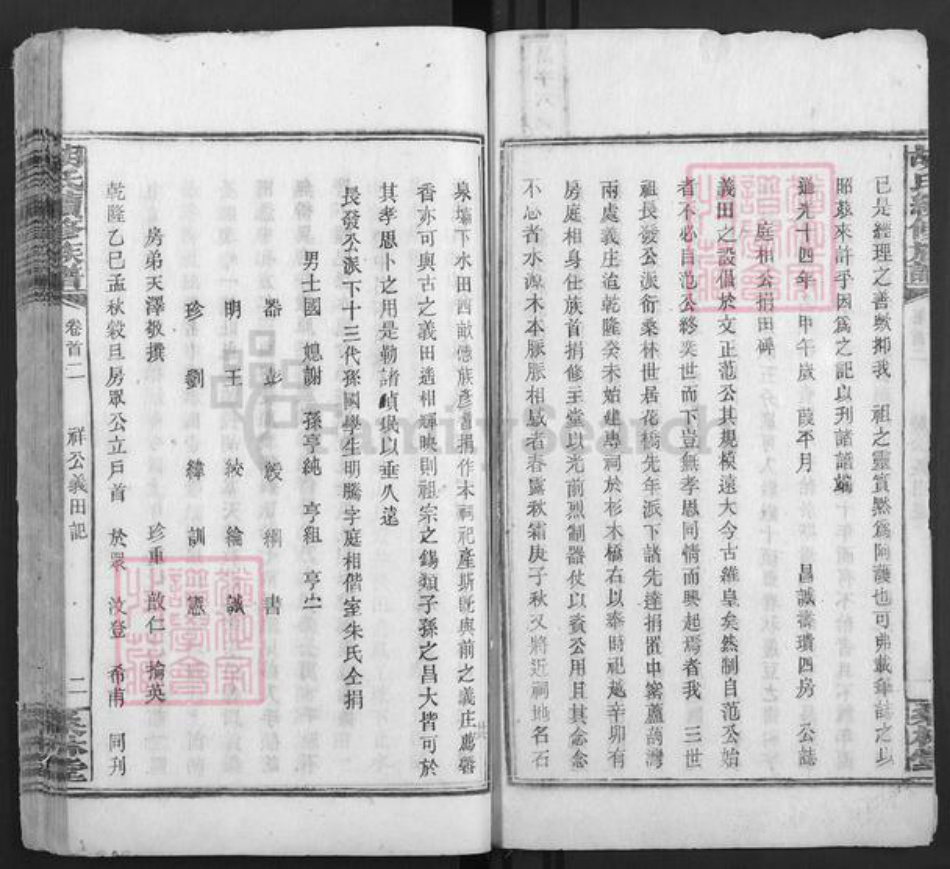 已是經理之善歟抑我 祖之靈實黙爲阿護也可弗載年誌之以
昭遨來許乎因爲之記以刋諸譜端
道光十四年 甲午歲 葭平月 昌誠濤瓚四房 公誌
庭相公捐田碑
義田之設倡於文正范公其規模遠大今古維皇矣然制自范公始
者不必自范公終奕世而下豈無孝思同情而興起焉者我 三世
祖長發公派衍桑林世居花橋先年派下諸先達捐置中窰蘆蒭灣
兩處義庄迨乾隆癸未始建專祠於杉木橋右以奉時祀越辛卯有
房庭相身仕族首捐修主堂以光前烈制器仗以資公用且其念念
不忘者水源木本脈脈相感者春露秋霜庚子秋又將近祠地名石
泉壩下水田四畝億族彥喜捐作本祠祀產斯旣與前之義庄薦馨
香亦可與古之義田遙相輝映則祖宗之錫類子孫之昌大皆可於
其孝思卜之用是勒諸貞珉以垂久遠
長發公派下十三代孫國學生明騰字庭相偕室朱氏仝捐
男士國 媳謝 孫亨純 亨組 亨
器 彭 綬 綱 書
明 王 紋 綸 誠
珍 劉 緯 訓 憲
房弟天澤敬撰 珍重 啟仁 掄英
乾隆乙巳孟秋穀旦房眾公立戶首 於眾 汶登 希甫 同刋
胡氏續修族譜
卷首二
祥公義田記
二
桑林堂
FamilySearch